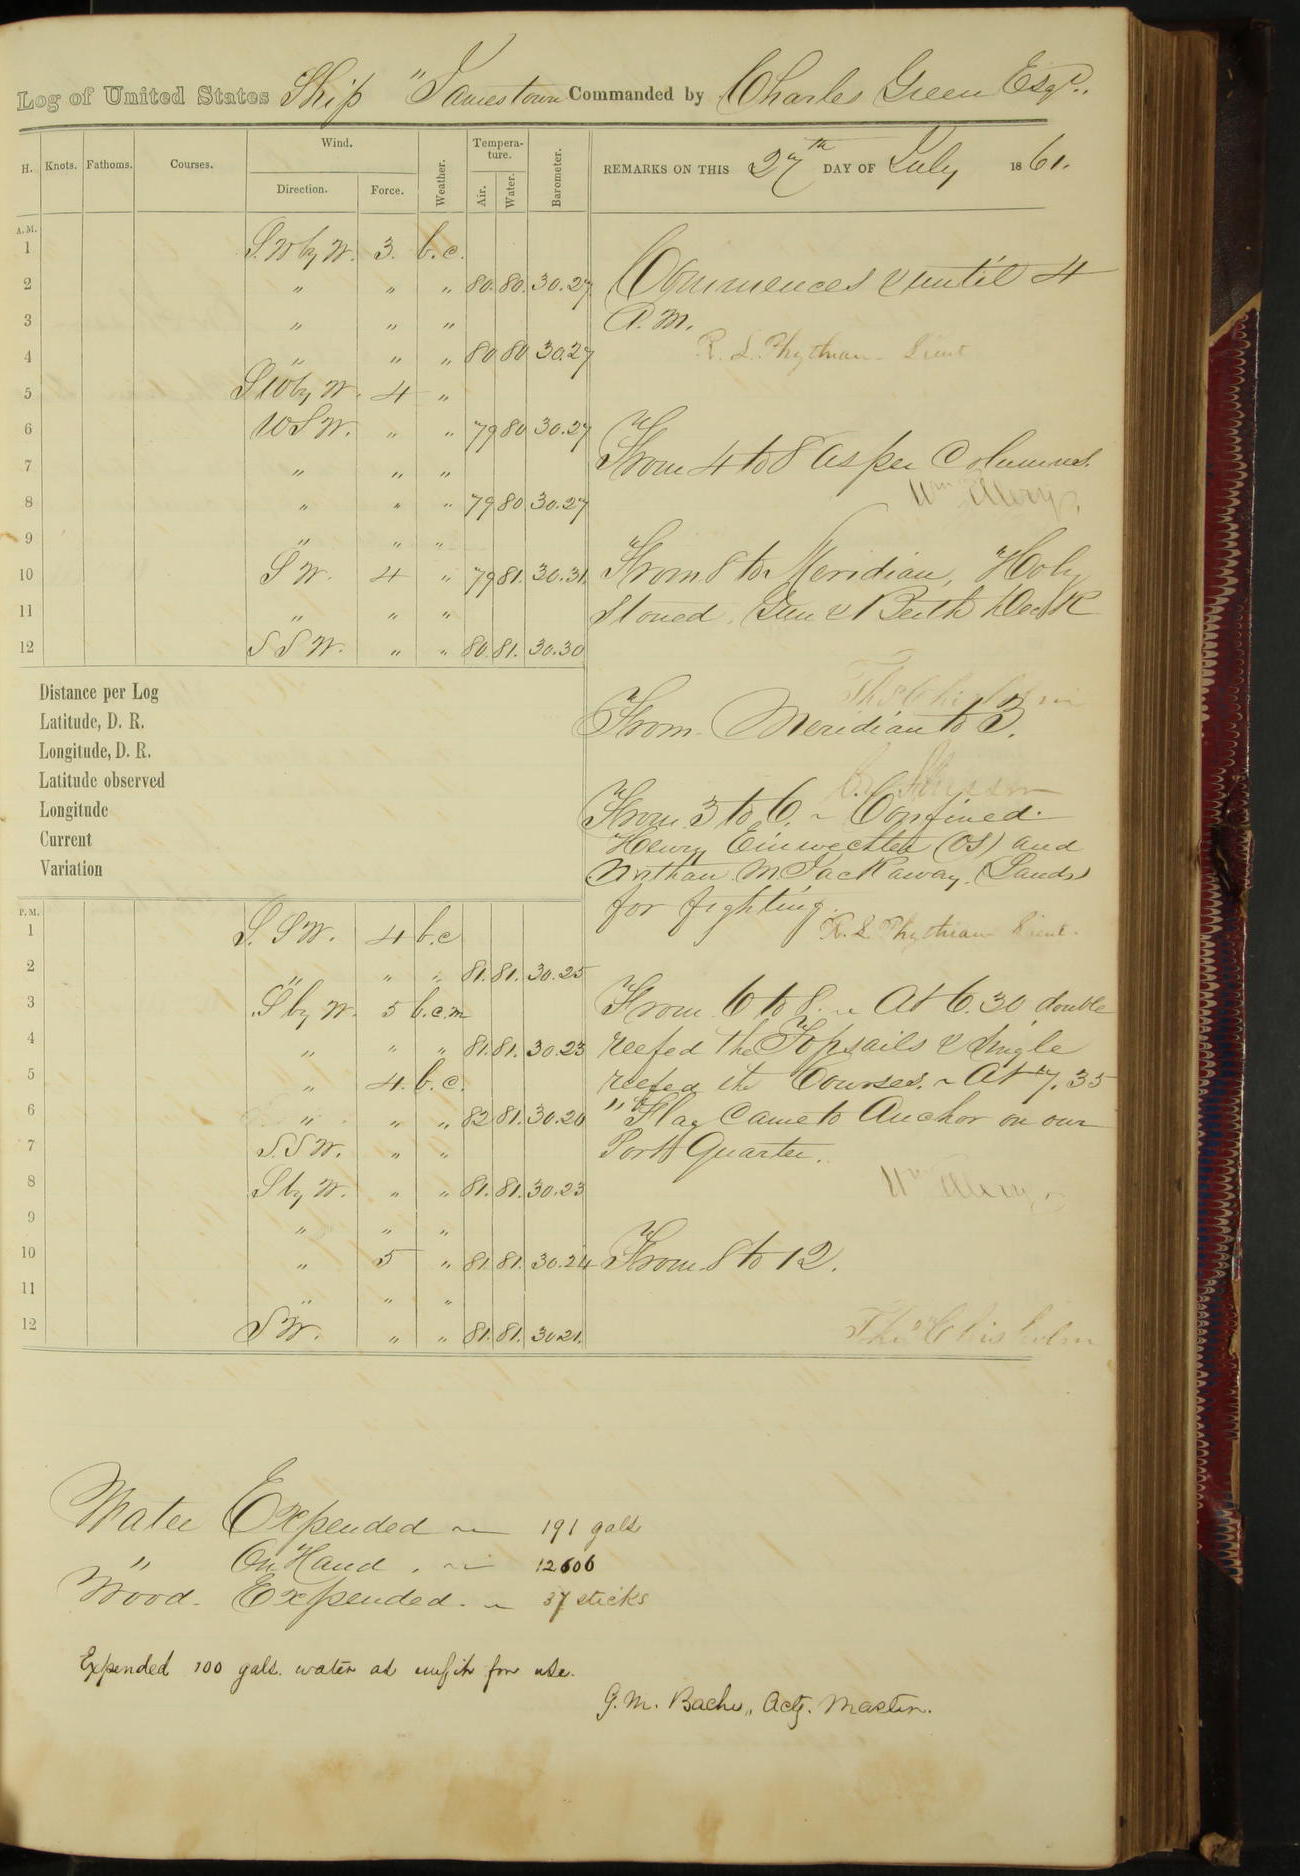 Log of United States Ship "Jamestown Commanded by Charles Green Esqr.
H. Knots. Fathoms. Courses. Wind. Direction. Force. Weather. Temperature. Air. Water. Barometer.
REMARKS ON THIS 27th DAY OF July 1861.
A.M.
1 S.W by W. 3. b.c.
2 " " " 80. 80. 30.27
3 " " "
4 " " " 80 80 30.27
5 S W by W. 4 "
6 W S W. " " 79 80 30.27
7 " " "
8 " " " 79 80 30.27
9 " " "
10 S W. 4 " 79 81. 30.31
11 " " "
12 S S W. " " 80. 81. 30.30
Commences & until 4
A.M.
R. L. Phythian Lieut
From 4 to 8 as per Columns.
Wm Ellery.
From 8 to Meridian, Holy
stoned Gun & Berth Deck
Distance per Log
Latitude, D. R.
Longitude, D. R.
Latitude observed
Longitude
Current
Variation
Thos Chisholm
From Meridian to 3.
From 3 to 6. ~ Confined
Henry Einwechter (OS) and
Nathan M. Jackaway (Lands)
for fighting.
R. L. Phythian Lieut.
P.M.
1 S. S W. 4 b.c
2 " " " 81. 81. 30.25
3 S by W. 5 b.c.m
4 " " " 81. 81. 30.23
5 " 4. b.c.
6 " " " 82 81. 30.20
7 S.S W. " "
8 S by W. " " 81. 81. 30.23
9 " " "
10 " 5 " 81. 81. 30.24
11 " " "
12 S W. " " 81. 81. 30.21.
From 6 to 8. ~ At 6.30 double
reefed the Topsails & single
reefed the Courses. ~ At 7.35
" Flag came to Anchor on our
Port Quarter.
Wm Ellery
From 8 to 12.
Thos Chisholm
Water Expended ~ 191 gals
" On Hand . ~ 12606
Wood. Expended. ~ 37 sticks
Expended 100 gals. water as unfit for use.
G. M. Bache, Actg. Master.